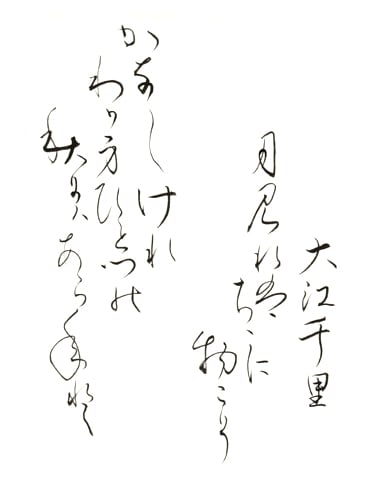 大江千里
月見れは
ちゝに
物こそ
かなしけれ
わか身ひとつの
秋にはあらねと